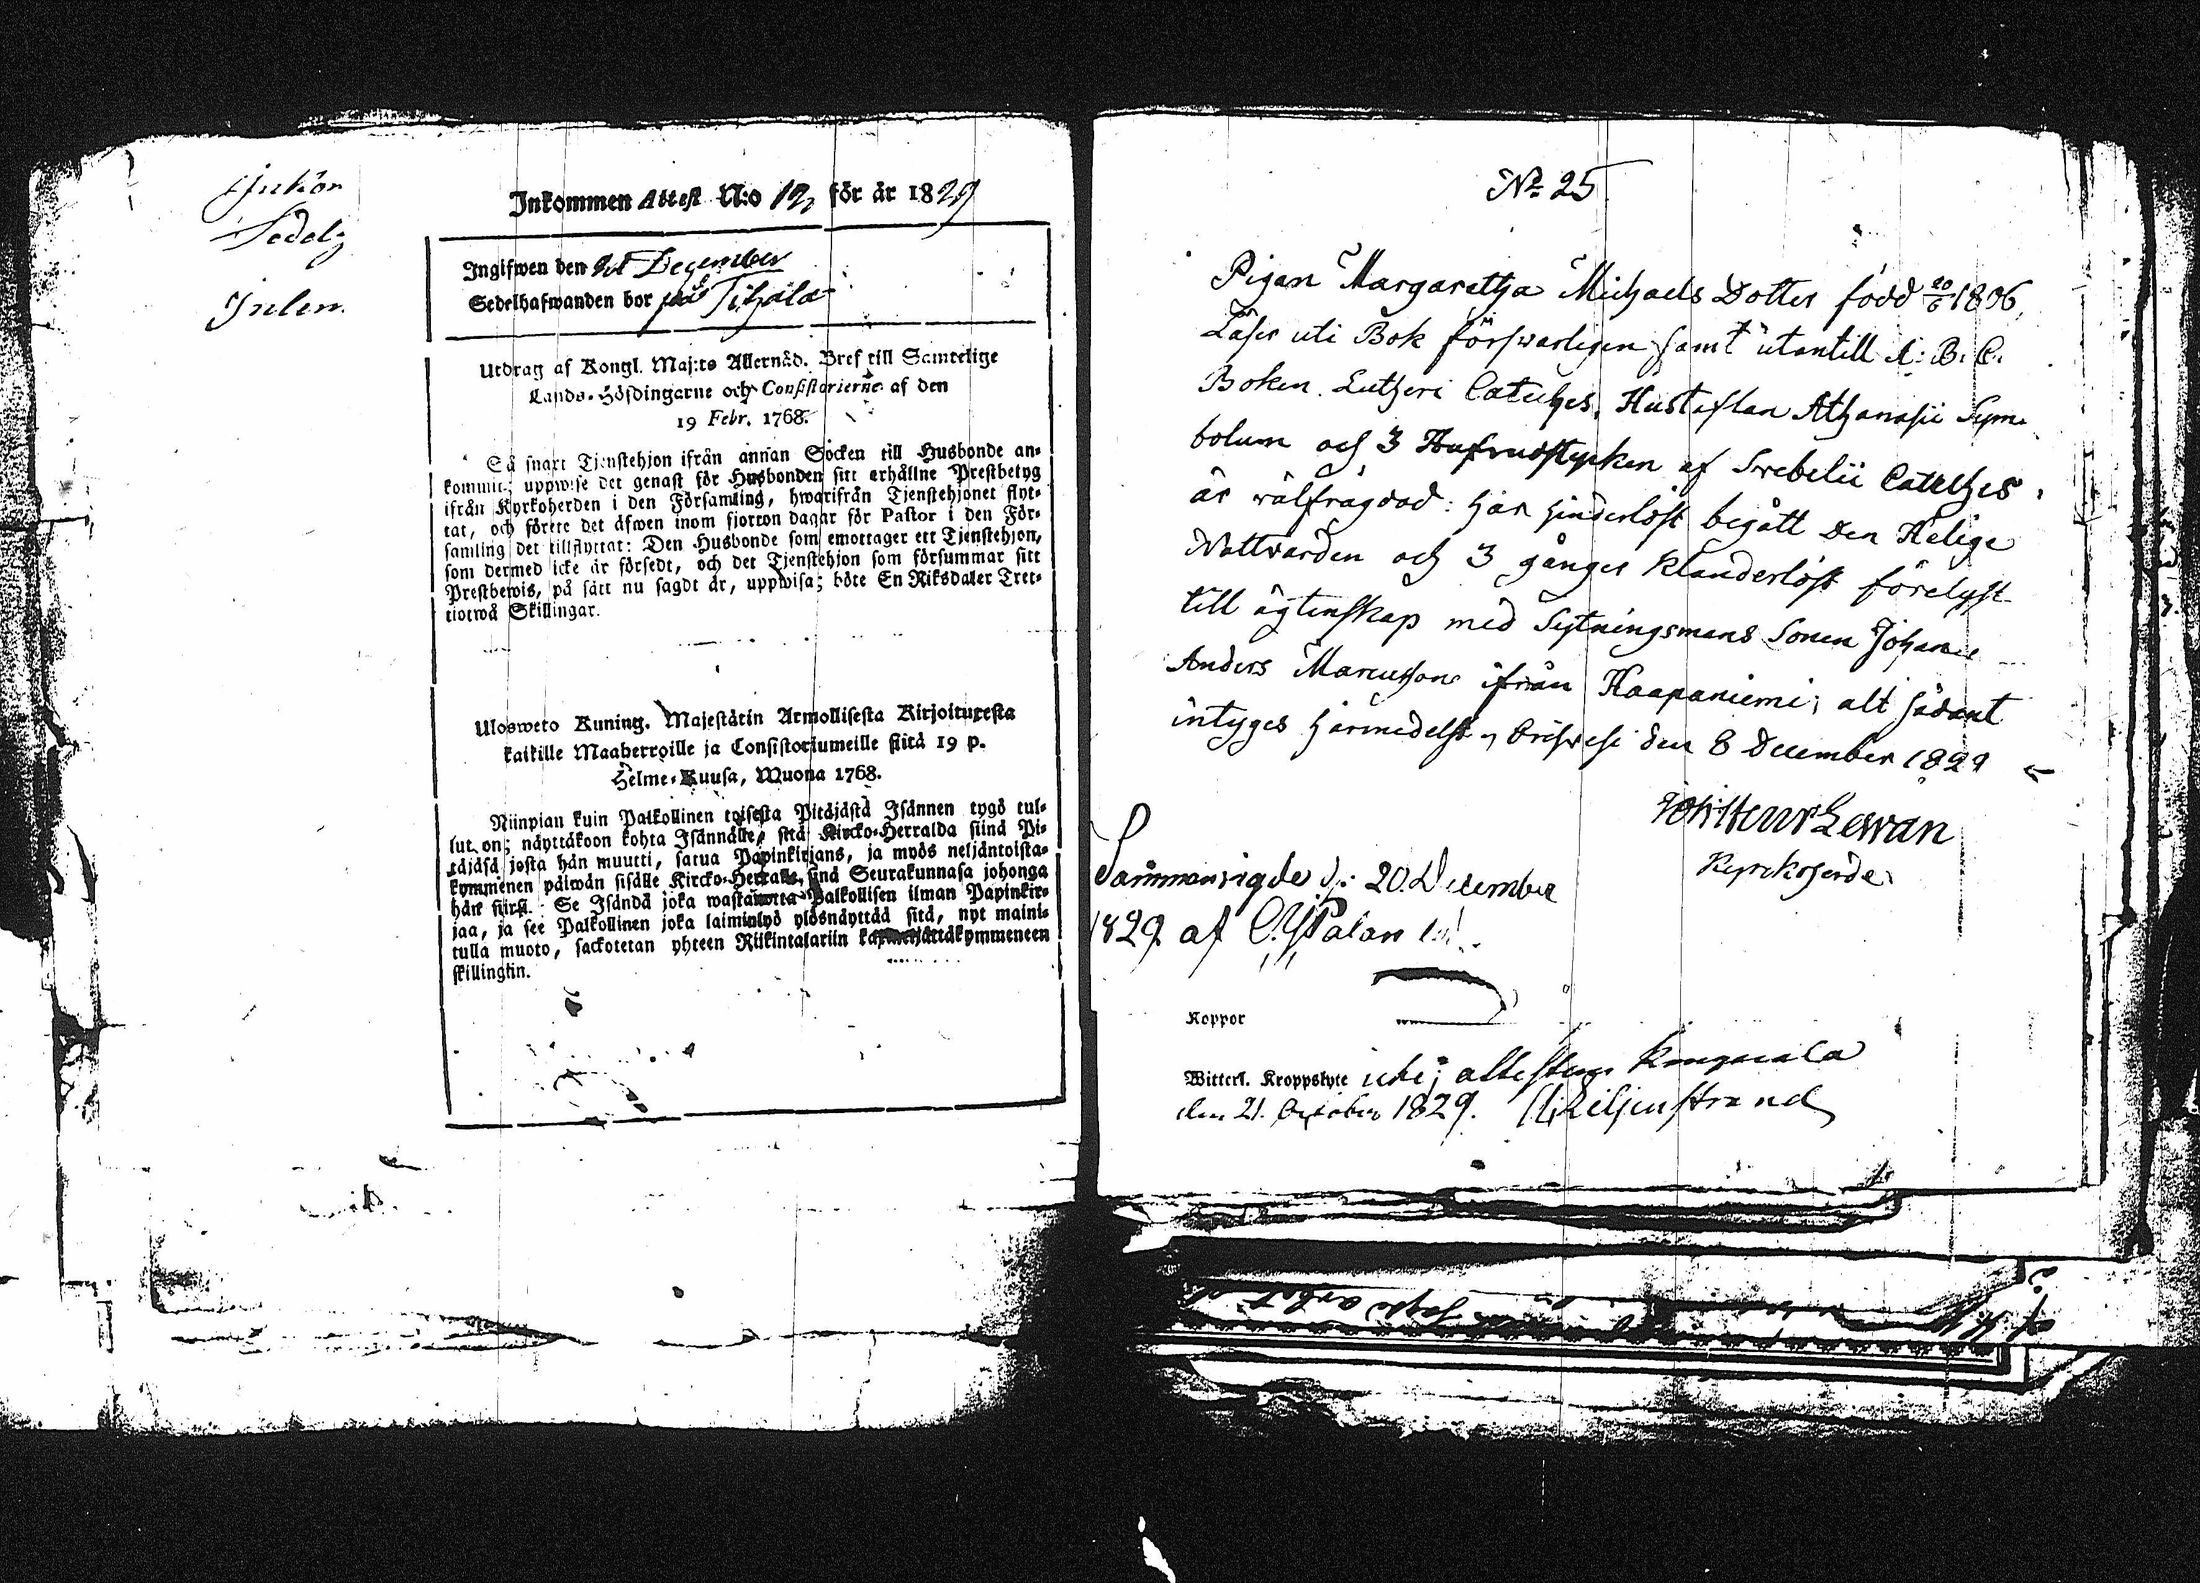 Inkommen Attest N:o 12, för år 1829
Ingifwen den December
Sedelhafwanden bor på Tihala
Utdrag af Kongl. Maj:ts Allernåd. Bref till Samtelige
Lands-Höfdingarne och Consistorierne af den
19 Febr. 1768.
Så snart Tjenstehjon ifrån annan Socken till Husbonde an-
kommit; uppwise det genast för Husbonden sitt erhållne Prestbetyg
ifrån Kyrkoherden i den Församling, hwarifrån Tjenstehjonet flyt-
tat, och förete det äfwen inom fjorton dagar för Pastor i den För-
samling det tillflyttat: Den Husbonde som emottager ett Tjenstehjon,
som dermed icke är försedt, och det Tjenstehjon som försummar sitt
Prestbewis, på sätt nu sagdt är, uppwisa; böte En Riksdaler Tret-
tiotwå Skillingar.
Ulosweto Kuning. Majestätin Armollisesta Kirjoituxesta
kaikille Maaherroille ja Consistoriumeille siitä 19 p.
Helme-Kuusa, Wuona 1768.
Niinpian kuin Palkollinen toisesta Pitäjästä Isännen tygö tul-
lut on; näyttäkoon kohta Isännälle, sitä Kircko-Herralda siinä Pi-
täjäsä josta hän muutti, saatua Papinkirjans, ja myös neljäntoista-
kymmenen päiwän sisälle Kircko-Herralle, sinä Seurakunnasa johonga
hän siirsi. Se Isändä joka wastanotta Palkollisen ilman Papinkir-
jaa, ja see Palkollinen joka laiminlyö ylösnäyttää sitä, nyt maini-
tulla muoto, sackotetan yhteen Riikintalariin kaxineljättäkymmeneen
skillingiin.
No 25
Pigan Margaretha Michaels Dotter född 20/6 1806,
Läser uti Bok försvarligen samt utantill A: B. C.
Boken. Lutheri Cateches, Hustaflan Athanasii Sym-
bolum och 3 Hufvudstycken af Svebelii Cateches,
är välfrägdad: har hinderlöst begått den Helige
Nattvarden och 3 gånger klanderlöst förelyst
till ägtenskap med Sytningsmans Sonen Johan
Anders Marcusson ifrån Haapaniemi; alt sådant
intyges härmedelst, Orihvesi den 8 December 1829
Lewan
Kyrckoherde.
Sammanvigde d: 20 December
1829 af
Koppor
Witterl. Kroppslyte icke; attesterar Kangasala
den 21. October 1829. Liljenstrand